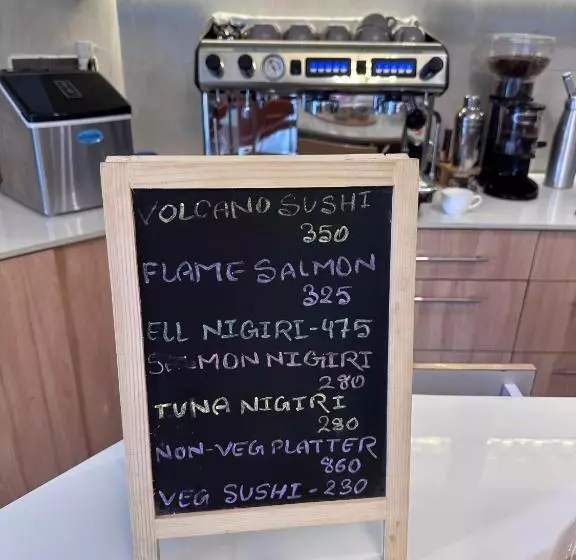 VOLCANO SUSHI
350
FLAME SALMON
325
ELL NIGIRI-475
SALMON NIGIRI
280
TUNA NIGIRI
280
NON-VEG PLATTER
860
VEG SUSHI - 230